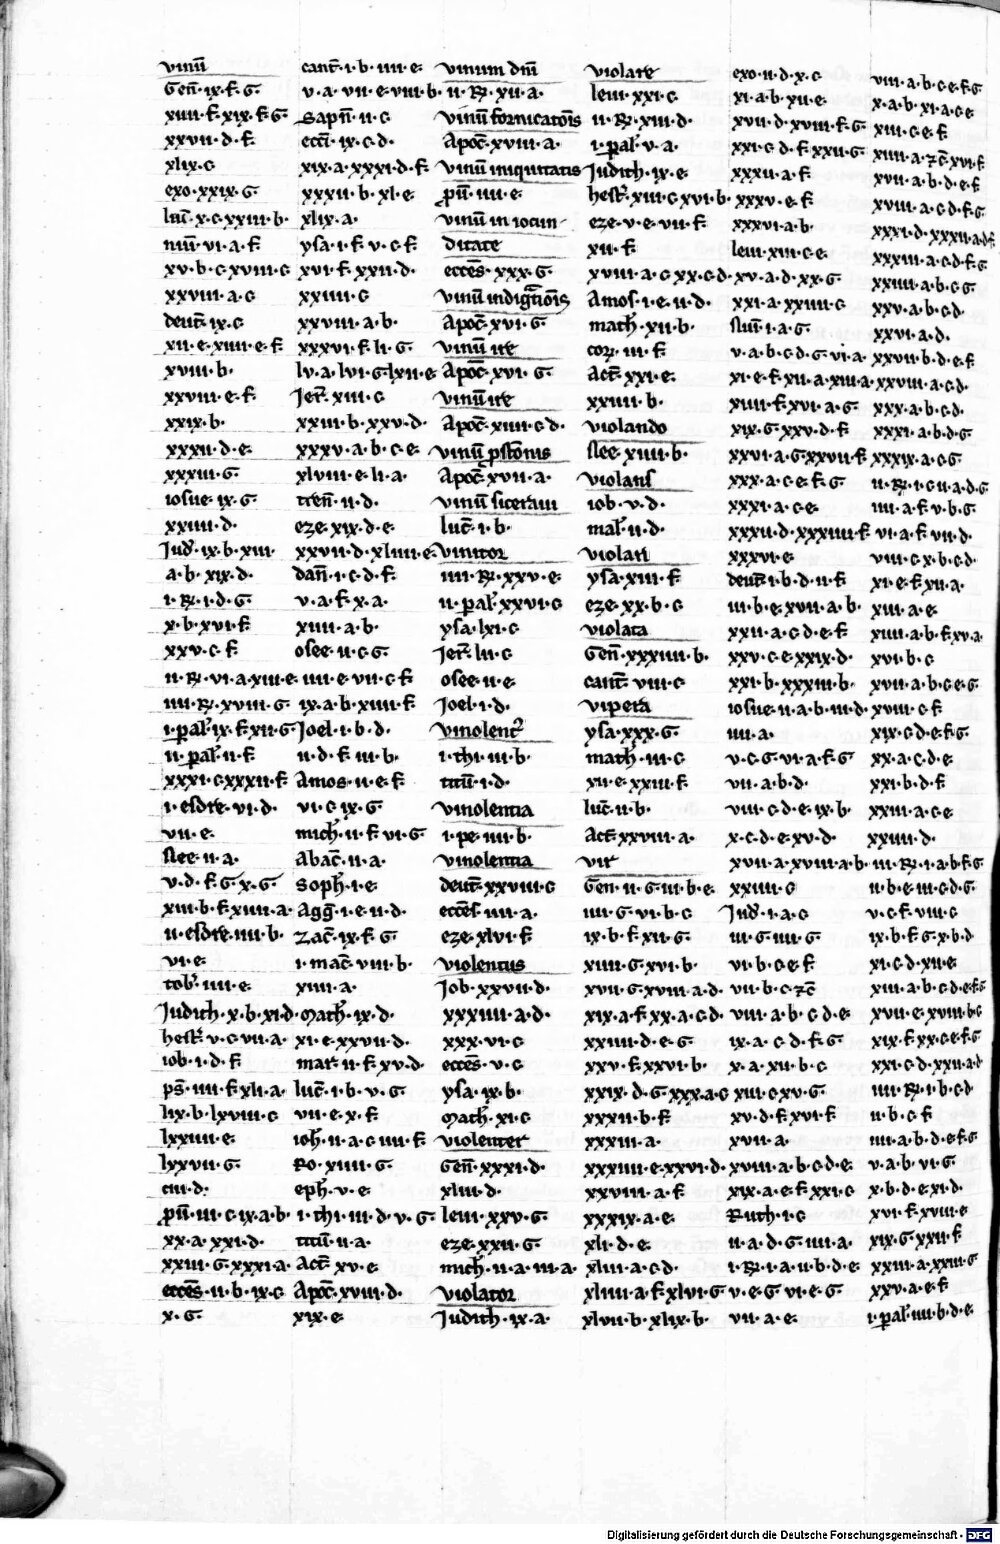 vinū
Gen̄·ix·f·G·
xiiii·f·xix·f·G·
xxvii·d·f·
xlix·c
exo·xxix·G·
leuī·x·c·xxiii·b·
num̄·vi·a·f·
xv·b·c·xviii·c
xxviii·a·c
deut̄·ix·c
xii·e·xiiii·e·f·
xviii·b·
xxviii·e·f
xxix·b·
xxxii·d·e·
xxxiii·G·
iosue·ix·G·
xxiiii·d·
Jud̄·ix·b·xiii·
a·b·xix·d·
i·R·i·d·G·
x·b·xvi·f
xxv·c·f
ii·R·vi·a·xiii·e
iiii·R·xviii·G
i·pal̄·ix·f·xii·G
ii·pal̄·ii·f
xxxi·c·xxxii·f
i·esdre·vi·d·
vii·e·
nee·ii·a·
v·d·f·G·x·G·
xiii·b·f·xiiii·a
ii·esdre·iiii·b·
vi·e·
tob̄·iiii·e·
Judith·x·b·xi·d·
hest̄·v·c·vii·a·
iob·i·d·f
ps̄·iiii·f·xli·a·
lix·b·lxviii·c
lxxiiii·e·
lxxvii·G·
ciii·d·
pū·iii·c·ix·a·b·
xx·a·xxi·d·
xxiii·G·xxxi·a·
ecces̄·ii·b·ix·c
x·G·
cant̄·i·b·iiii·e·
v·a·vii·e·viii·b·
Sapn̄·ii·c
eccī·ix·c·d·
xix·a·xxxi·d·f
xxxii·b·xl·e·
xlix·a·
ysa·i·f·v·c·f
xvi·f·xxii·d·
xxiiii·c
xxviii·a·b·
xxxvi·f·li·G·
lv·a·lvi·G·lxii·e
Jer̄·xiii·c
xxiii·b·xxv·d·
xxxv·a·b·c·e·
xlviii·e·li·a·
tren̄·ii·d·
eze·xix·d·e·
xxvii·d·xliiii·e
dan̄·i·c·d·f·
v·a·f·x·a·
xiiii·a·b·
osee·ii·c·G·
iiii·e·vii·c·f
ix·a·b·xiiii·f
Joel·i·b·d·
ii·d·f·iii·b·
Amos·ii·e·f
vi·c·ix·G
mich̄·ii·f·vi·G
Abac̄·ii·a·
Soph̄·i·e·
Agḡ·i·e·ii·d·
zac̄·ix·f·G·
i·mac̄·viii·b·
xiiii·a·
Math̄·ix·d·
xi·e·xxvii·d·
mar̄·ii·f·xv·d·
luc̄·i·b·v·G
vii·e·x·f
ioh̄·ii·a·c·iiii·f
Ro·xiiii·G·
eph̄·v·e·
i·thi·iii·d·v·G·
titū·ii·a·
Act̄·xv·e·
Apoc̄·xviii·d·
xix·e·
vinum dn̄i
ii·R·xii·a·
vinū fornicatōis
Apoc̄·xviii·a·
vinū iniquitatis
pū·iiii·e·
vinū in iocun-
ditate
ecces̄·xxx·G·
vinū indigtiōis
Apoc̄·xvi·G·
vinū ire
Apoc̄·xvi·G·
vinū ire
Apoc̄·xiiii·c·d·
vinū pstōnis
Apoc̄·xvii·a·
vinū siceram
luc̄·i·b·
vinitor
iiii·R·xxv·e·
ii·pal̄·xxvi·c
ysa·lxi·c
Jer̄·lii·c
osee·ii·e·
Joel·i·d·
vinolent̄
i·thi·iii·b·
titū·i·d·
vinolentia
i·pe·iiii·b·
vinolentia
deut̄·xxviii·c
ecces̄·iiii·a·
eze·xlvi·f
violentus
Job·xxvii·d·
xxxiiii·a·d·
xxx·vi·c
ecces̄·v·c
ysa·ix·b·
Math̄·xi·c
violenter
Gen̄·xxxi·d·
xliii·d·
leui·xxv·G·
eze·xxii·G·
mich̄·ii·a·iii·a·
violator
Judith·ix·a·
violare
leui·xxi·c
ii·R·xiii·d·
i·pal̄·v·a·
Judith·ix·e·
hest̄·xiii·c·xvi·b·
eze·v·e·vii·f
xii·f
xviii·a·c·xx·c·d·
Amos·i·e·ii·d·
math̄·xii·b·
cor·iii·f
Act̄·xxi·e·
xxiiii·b·
violando
nee·xiiii·b·
violans
iob·v·d·
mal̄·ii·d·
violari
ysa·xiii·f
eze·xx·b·c
violata
Gen̄·xxxiiii·b·
cant̄·viii·c
vipera
ysa·xxx·G·
math̄·iii·c
xii·e·xxiii·f
luc̄·ii·b·
Act̄·xxviii·a·
vir
Gen·ii·G·iii·b·e·
iiii·G·vi·b·c
ix·b·f·xii·G·
xiiii·G·xvi·b·
xvii·G·xviii·a·d·
xix·a·f·xx·a·c·d·
xxiiii·d·e·G·
xxv·f·xxvi·b·
xxix·d·G·xxx·a·c
xxxii·b·f
xxxiii·a·
xxxiiii·e·xxvi·d·
xxviii·a·f
xxxix·a·e·
xli·d·e·
xliii·a·c·d·
xliiii·a·f·xlvi·G
xlvii·b·xlix·b·
exo·ii·d·x·c
xi·a·b·xii·e·
xvii·d·xviii·f·G
xxi·c·d·f·xxii·G
xxxii·a·f
xxxv·e·f
xxxvi·a·b
leui·xiii·c·e·
xv·a·d·xx·G·
xxi·a·xxiiii·c
num̄·i·a·G
v·a·b·c·d·G·vi·a·
xi·e·f·xii·a·xiii·a
xiiii·f·xvi·a·G
xix·G·xxv·d·f
xxvi·a·G·xxvii·f
xxx·a·c·e·f·G
xxxi·a·c·e·
xxxii·d·xxxiiii·f
xxxvi·e·
deut̄·i·b·d·ii·f·
iii·b·e·xvii·a·b·
xxii·a·c·d·e·f·
xxv·c·e·xxix·d·
xxi·b·xxxiii·b·
iosue·ii·a·b·iii·d·
iiii·a·
v·c·G·vi·a·f·G
vii·a·b·d·
viii·c·d·e·ix·b·
x·c·d·e·xv·d·
xvii·a·xviii·a·b·
xxiiii·c
Jud̄·i·a·c
iii·G·iiii·G
vi·b·c·e·f·
vii·b·c·
viii·a·b·c·d·e·
ix·a·c·d·f·G
x·a·xii·b·c
xiii·c·xv·G·
xv·d·f·xvi·f·
xvii·a·
xviii·a·b·c·d·e·
xix·a·e·f·xxi·c
Ruth·i·c
ii·a·d·G·iiii·a·
i·R·i·a·ii·b·d·e·
v·e·G·vi·e·G·
vii·a·e·
viii·a·b·c·e·f·G
x·a·b·xi·a·c·e
xiii·c·e·f
xiiii·a·xvi·f
xvii·a·b·d·e·f
xviii·a·c·d·f·G
xxxi·d·xxxii·a·d·f
xxxiii·a·c·d·f·G
xxiiii·a·b·c·G
xxv·a·b·c·d·
xxvi·a·d·
xxvii·b·d·e·f
xxviii·a·c·d·
xxx·a·b·c·d·
xxxi·a·b·d·G
xxxix·a·c·G
ii·R·i·c·ii·a·d·G
iiii·a·f·v·b·G
vi·a·f·vii·d·
viii·c·x·b·c·d·
xi·e·f·xii·a·
xiii·a·e·
xiiii·a·b·f·xv·a·
xvi·b·c
xvii·a·b·c·e·G
xviii·c·f
xix·c·d·e·f·G
xx·a·c·d·e
xxi·b·d·f
xxiii·a·c·e
xxiiii·d·
iii·R·i·a·b·f·G
ii·b·e·iii·c·d·G
v·c·f·viii·c
ix·b·f·G·x·b·d
xi·c·d·xii·e·
xiii·a·b·c·d·e·f·G
xvii·e·xviii·b·c
xix·f·xx·c·e·f·G
xxi·c·d·xxii·a·d
iiii·R·i·b·c·d
ii·b·c·f
iiii·a·b·d·e·f·G
v·a·b·vi·G·
x·b·d·e·xi·d·
xvi·f·xviii·e
xix·G·xxii·f
xxiii·a·xxiii·G
xxv·a·e·f
i·pal̄·iiii·b·d·e·
Digitalisierung gefördert durch die Deutsche Forschungsgemeinschaft - DFG